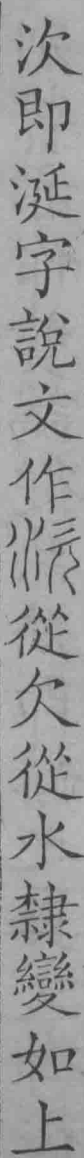 㳄即涎字說文作㳄從欠從水隸變如上